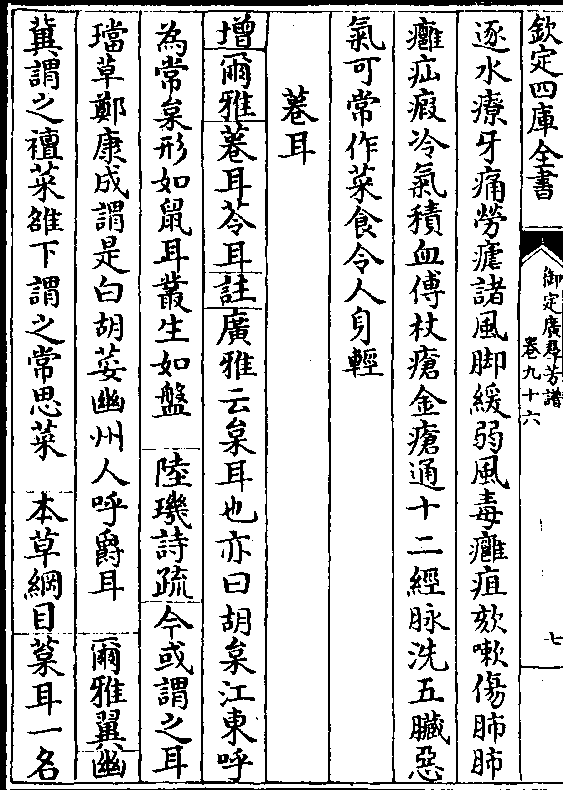 欽定四庫全書
御定廣羣芳譜
卷九十六
七
逐水療牙痛勞瘧諸風脚緩弱風毒癰疽欬嗽傷肺肺
癰疝瘕冷氣積血傅杖瘡金瘡通十二經脉洗五臟惡
氣可常作菜食令人身輕
菤耳
增爾雅菤耳苓耳註廣雅云枲耳也亦曰胡枲江東呼
為常枲形如鼠耳叢生如盤 陸璣詩疏今或謂之耳
璫草鄭康成謂是白胡荽幽州人呼爵耳 爾雅翼幽
冀謂之襢菜雒下謂之常思菜 本草綱目葈耳一名